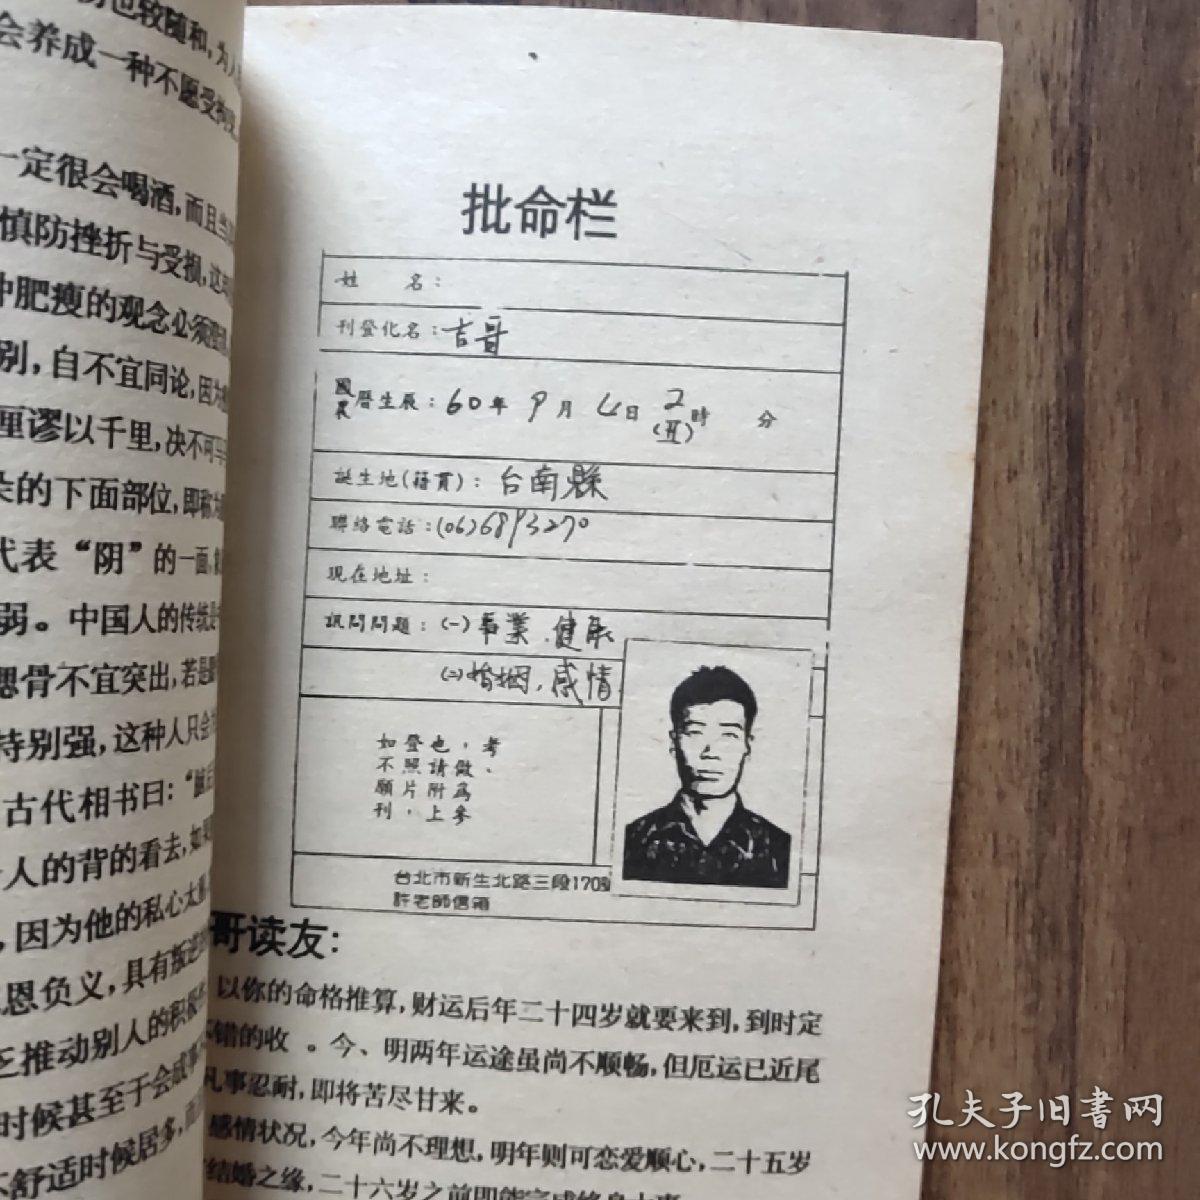 也较随和,为人
会养成一种不愿受拘束
一定很会喝酒,而且当
慎防挫折与受损,这
肥瘦的观念必须
别,自不宜同论,因为
厘谬以千里,决不可
的下面部位,即称为
代表“阴”的一面,
弱。中国人的传统是
腮骨不宜突出,若是
特别强,这种人只会
古代相书曰:“
人的背的看去,如果
,因为他的私心太
恩负义,具有叛逆
乏推动别人的积极
时候甚至于会
不舒适时候居多,而
批命栏
姓 名:
刊登化名:吉哥
國農曆生辰:60年9月4日2(丑)時 分
誕生地(籍貫):台南縣
聯絡電話:(06)6893270
現在地址:
訊問問題:(一)事業、健康
(二)婚姻、感情
如登也,考
不照請做、
願片附為
刊,上參
台北市新生北路三段170號
許老師信箱
哥读友:
以你的命格推算,财运后年二十四岁就要来到,到时定
错的收 。今、明两年运途虽尚不顺畅,但厄运已近尾
凡事忍耐,即将苦尽甘来。
感情状况,今年尚不理想,明年则可恋爱顺心,二十五岁
结婚之缘,二十六岁之前即能完成终身大事
孔夫子旧书网
www.kongfz.com